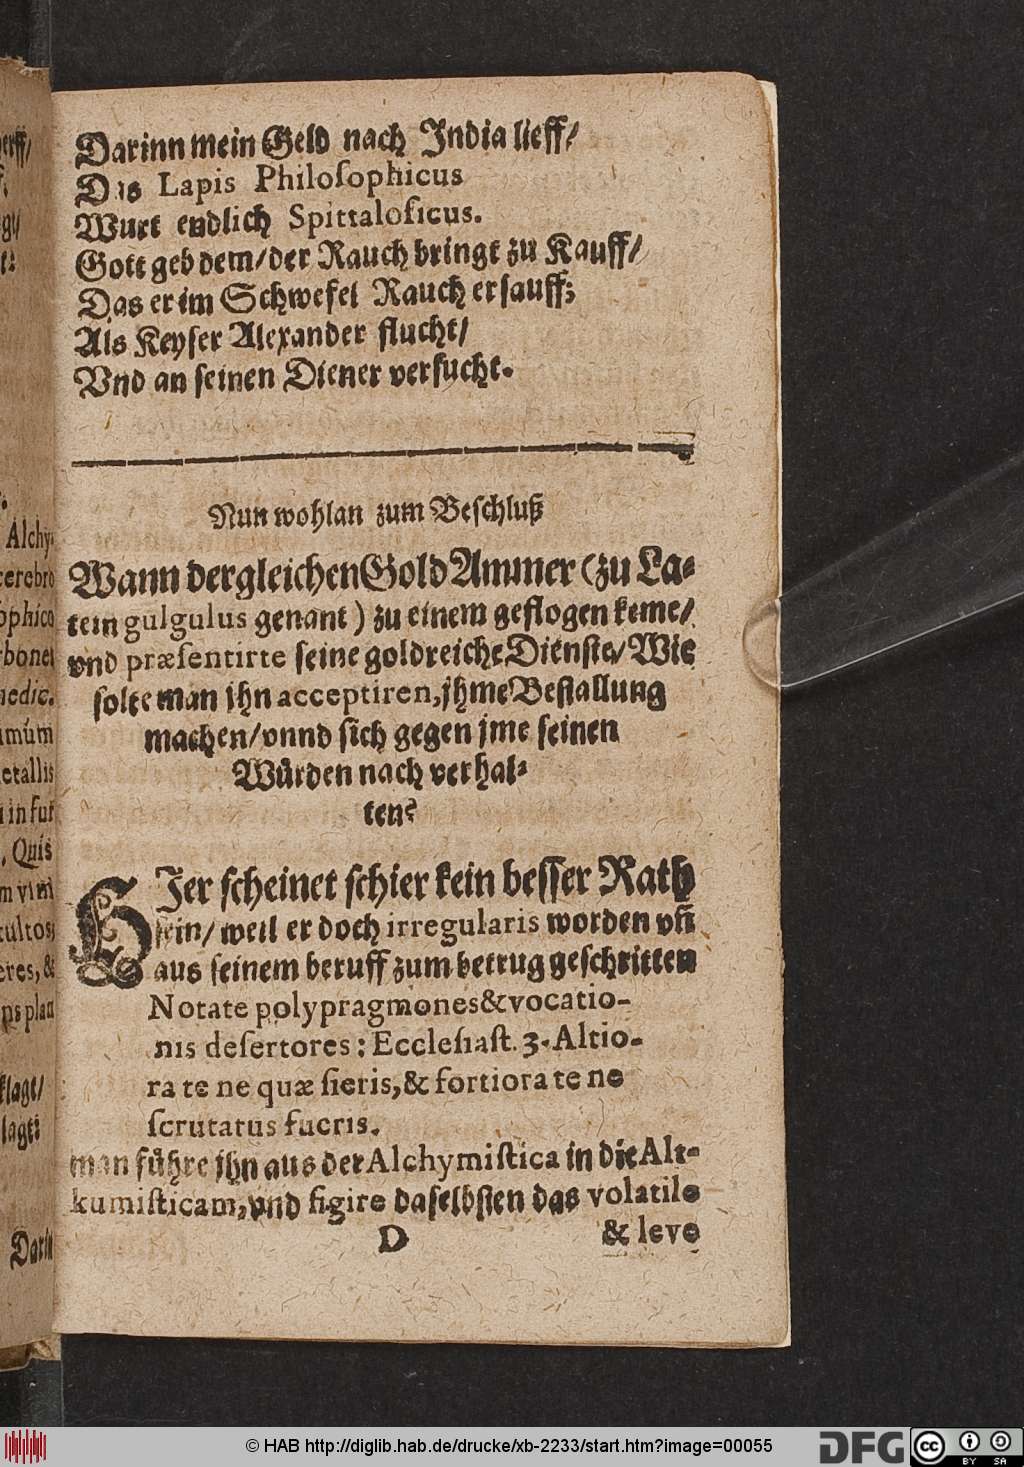 Darinn mein Geld nach India lieff/
Das Lapis Philoſophicus
Wurt endlich Spittaloficus.
Gott geb dem/der Rauch bringt zu Kauff/
Das er im Schwefel Rauch erſauff;
Als Keyſer Alexander flucht/
Vnd an ſeinen Diener verſucht.
Nun wohlan zum Beſchluß
Wann dergleichen Gold Ammer (zu La-
tein gulgulus genant) zu einem geflogen keme/
vnd præſentirte ſeine goldreiche Dienſte/Wie
ſolte man jhn acceptiren, jhme Beſtallung
machen/vnnd ſich gegen jme ſeinen
Würden nach verhal-
ten?
HIer ſcheinet ſchier kein beſſer Rath
ſein/ weil er doch irregularis worden vñ
aus ſeinem beruff zum betrug geſchritten
Notate polypragmones & vocatio-
nis deſertores: Eccleſiaſt. 3. Altio-
ra te ne quæ ſieris, & fortiora te ne
ſcrutatus fueris.
man führe jhn aus der Alchymiſtica in die Alt-
kumiſticam, vnd figire daſelbſten das volatile
D & leve
Alchy-
cerebro
ophico
rbones
medic.
etallis
in fur
, Quis
m vini
cultos,
eres, &
ps plan
klagt/
lagt:
Darin
© HAB http://diglib.hab.de/drucke/xb-2233/start.htm?image=00055
DFG
cc
BY SA